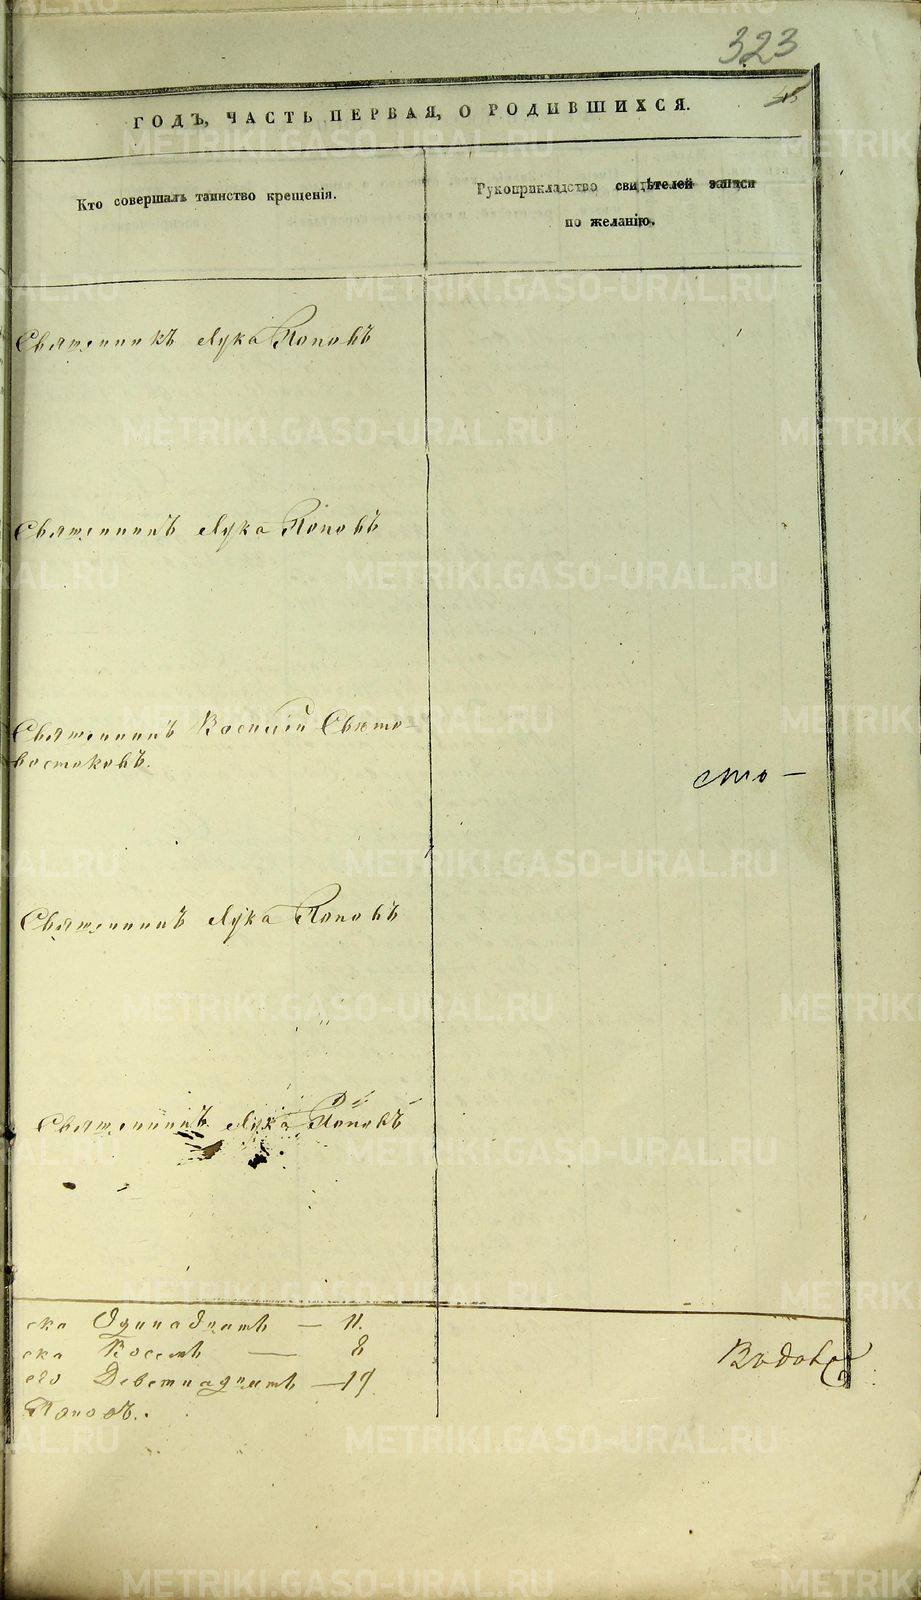 323
ГОДЪ, ЧАСТЬ ПЕРВАЯ, О РОДИВШИХСЯ.
Кто совершалъ таинство крещенія.
Рукоприкладство свидѣтелей записи
по желанію.
Священникъ Лука Поповъ
Священникъ Лука Поповъ
Священникъ Василій Свѣто-
востоковъ.
сто —
Священникъ Лука Поповъ
Священникъ Лука Поповъ
ска Одинадцать — 11.
ска Восемь — 8
его Девятнадцать — 19
Поповъ.
METRIKI.GASO-URAL.RU